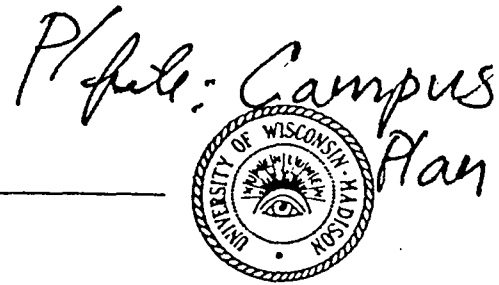 P/file: Campus
Plan
UNIVERSITY OF WISCONSIN-MADISON